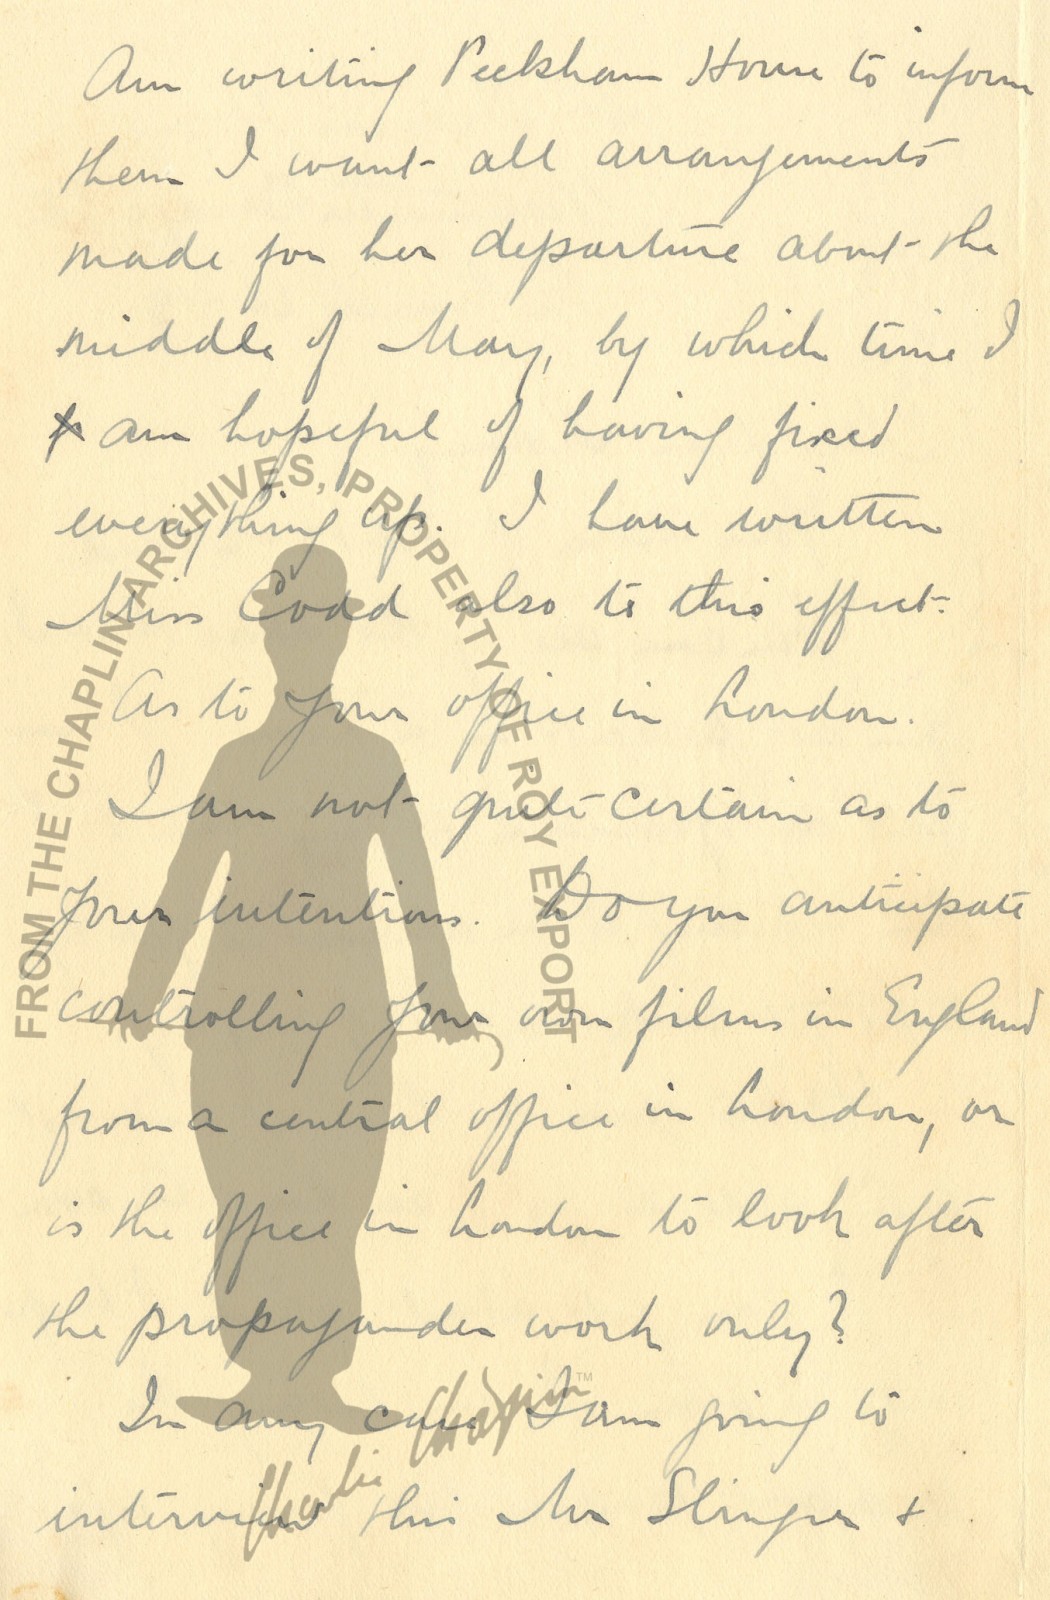 Am writing Peckham House to inform
them I want all arrangements
made for her departure about the
middle of May, by which time I
am hopeful of having fixed
everything up. I have written
Miss Codd also to this effect.
As to your office in London.
I am not quite certain as to
your intentions. Do you anticipate
controlling your own films in England
from a central office in London, or
is the office in London to look after
the propaganda work only?
In any case I am going to
interview this Mr Slinger +
FROM THE CHAPLIN ARCHIVES, PROPERTY OF ROY EXPORT
Charlie Chaplin™